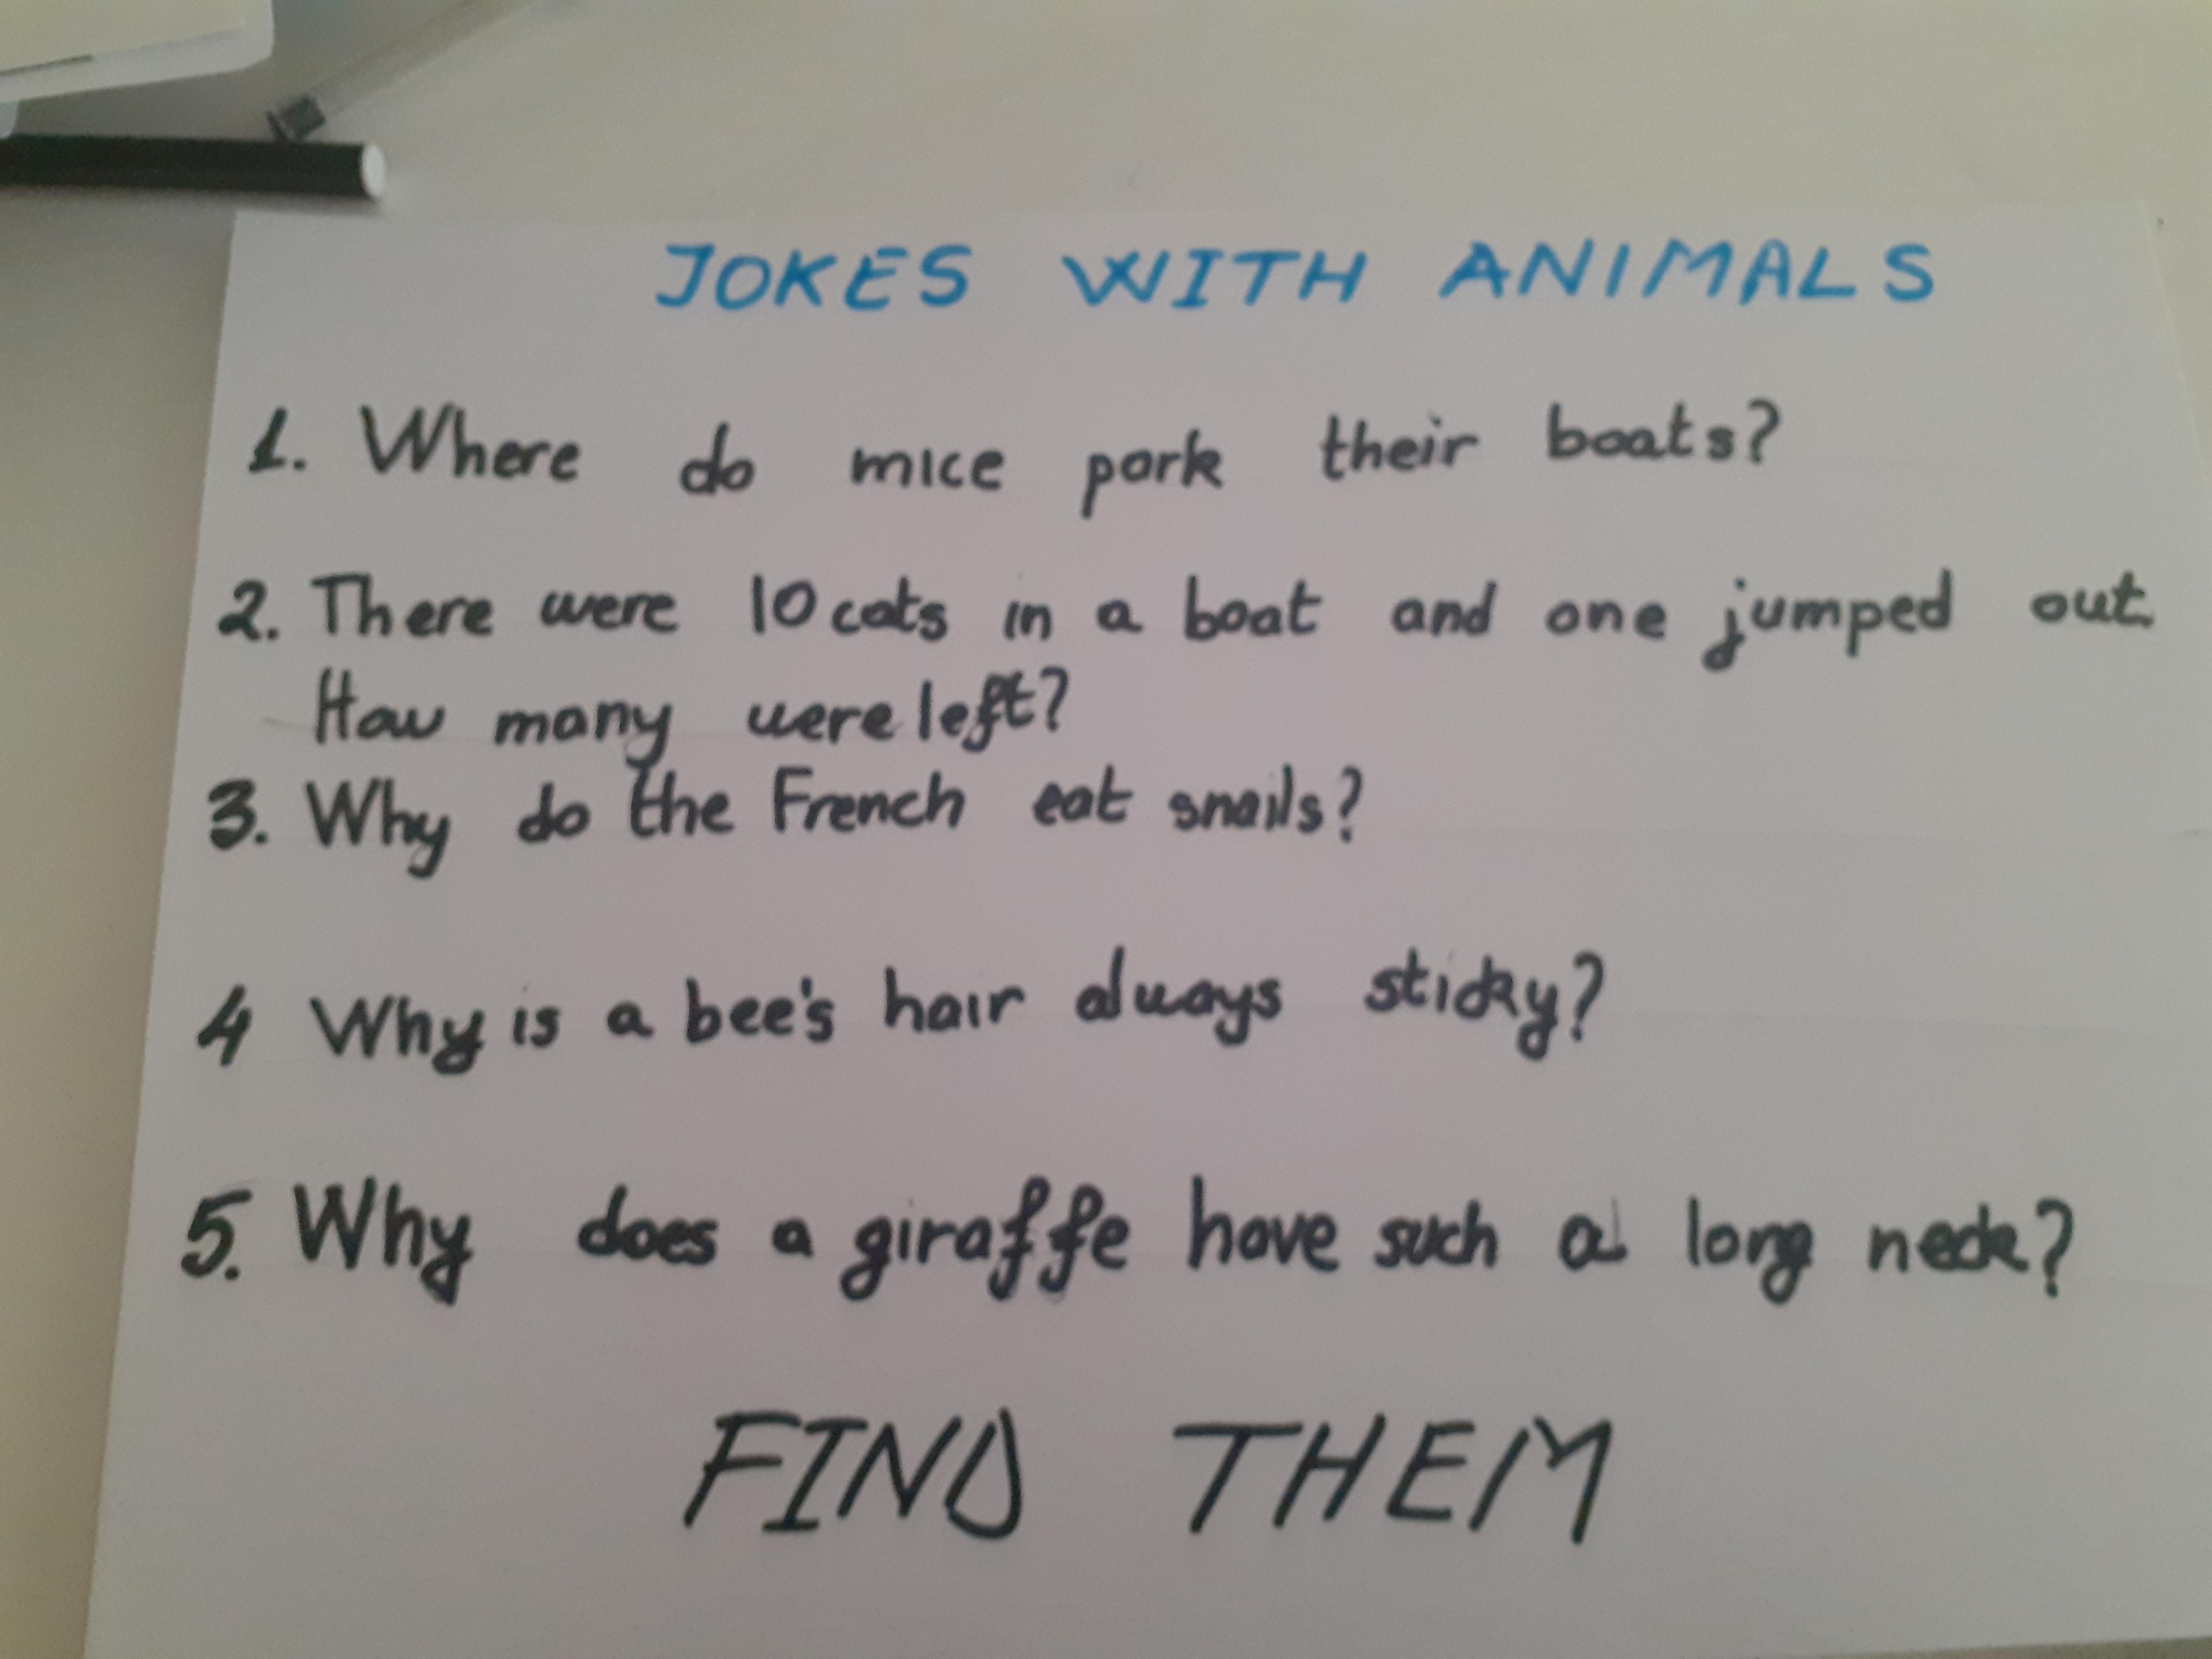 JOKES WITH ANIMALS
1. Where do mice park their boats?
2. There were 10 cats in a boat and one jumped out.
How many were left?
3. Why do the French eat snails?
4 Why is a bee's hair always sticky?
5. Why does a giraffe have such a long neck?
FIND THEM